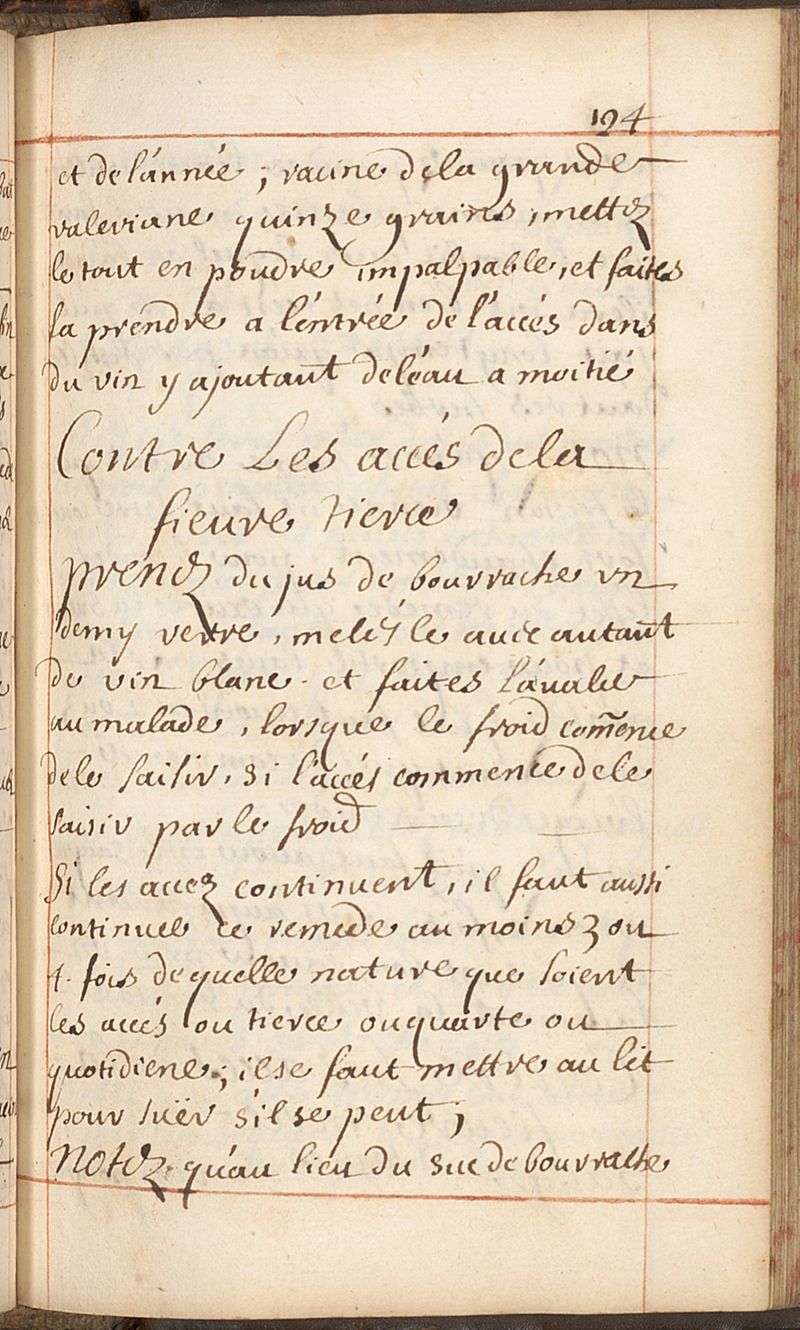 194
et de l'année ; racine de la grande
valeriane quinze grains, mettez
le tout en poudre impalpable, et faites
la prendre a l'entrée de l'accés dans
du vin y ajoutant de l'eau a moitié
Contre Les accés de la
fieure tierce
prenez du jus de bourrache vn
demy verre, melés le auec autant
de vin blanc. et faites l'aualer
au malade, lorsque le froid com̃ence
de le saisir, si l'accés commence de le
saisir par le froid
Si les accez continuent, il faut aussi
continuer ce remede au moins 3 ou
4. fois de quelle nature que soient
les accés ou tierce ou quarte ou
quotidiene ; il se faut mettre au lit
pour süer s'il se peut ;
Notez qu'au lieu du suc de bourrache